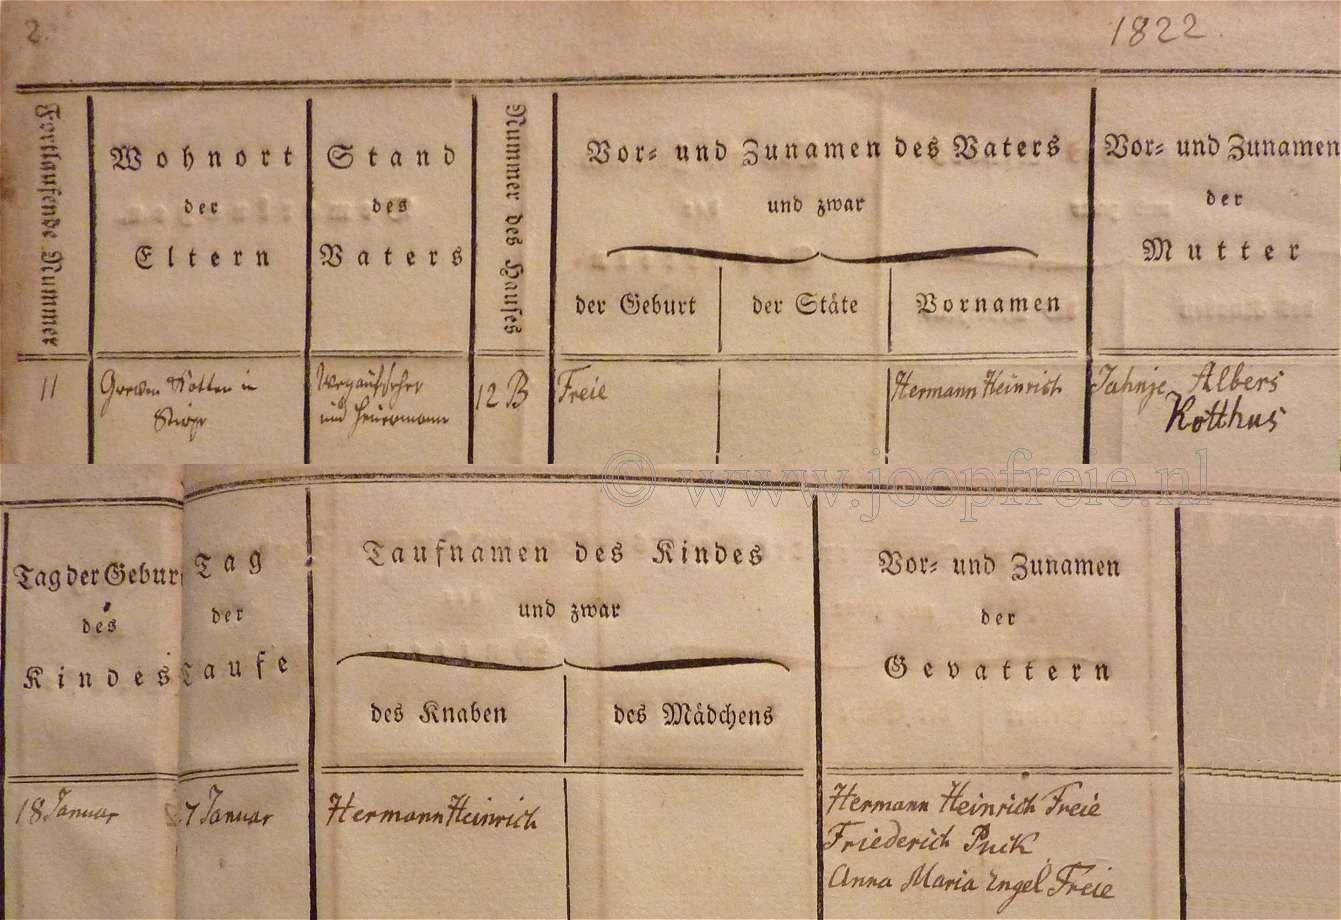 2.
1822.
Fortlaufende Nummer
Wohnort
der
Eltern
Stand
des
Vaters
Nummer des Hauses
Vor- und Zunamen des Vaters
und zwar
der Geburt
der Stäte
Vornamen
Vor- und Zunamen
der
Mutter
11
Kotten in
und Heuermann
12 B
Freie
Hermann Heinrich
Albers
Kotthus
© www.joopfreie.nl
Tag der Gebur
des
Kindes
Tag
der
Taufe
Taufnamen des Kindes
und zwar
des Knaben
des Mädchens
Vor- und Zunamen
der
Gevattern
18 Januar
27 Januar
Hermann Heinrich
Hermann Heinrich Freie
Friederich
Anna Maria Engel Freie